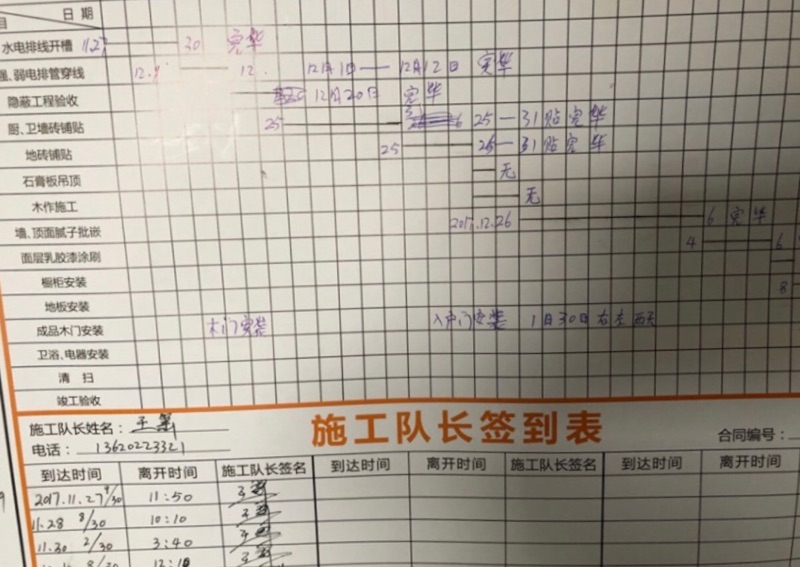 目 日期
水电排线开槽 11.27 30 完毕
强、弱电排管穿线 12.9 12. 12月1日 — 12月12日 完毕
隐蔽工程验收 12月20日 完毕
厨、卫墙砖铺贴 25 31 25 — 31贴完毕
地砖铺贴 25 25 — 31贴完毕
石膏板吊顶 无
木作施工 无
墙、顶面腻子批嵌 2017.12.26 6 完毕
面层乳胶漆涂刷 4 6
橱柜安装 8
地板安装
成品木门安装 木门安装 入户门安装 1月30日右左
卫浴、电器安装
清扫
竣工验收
施工队长签到表
施工队长姓名：
电话：13620223321
合同编号：
到达时间 离开时间 施工队长签名 到达时间 离开时间 施工队长签名 到达时间 离开时间
2017.11.27 8/30 11:50
11.28 8/30 10:10
11.30 2/30 3:40
8/30 12:10